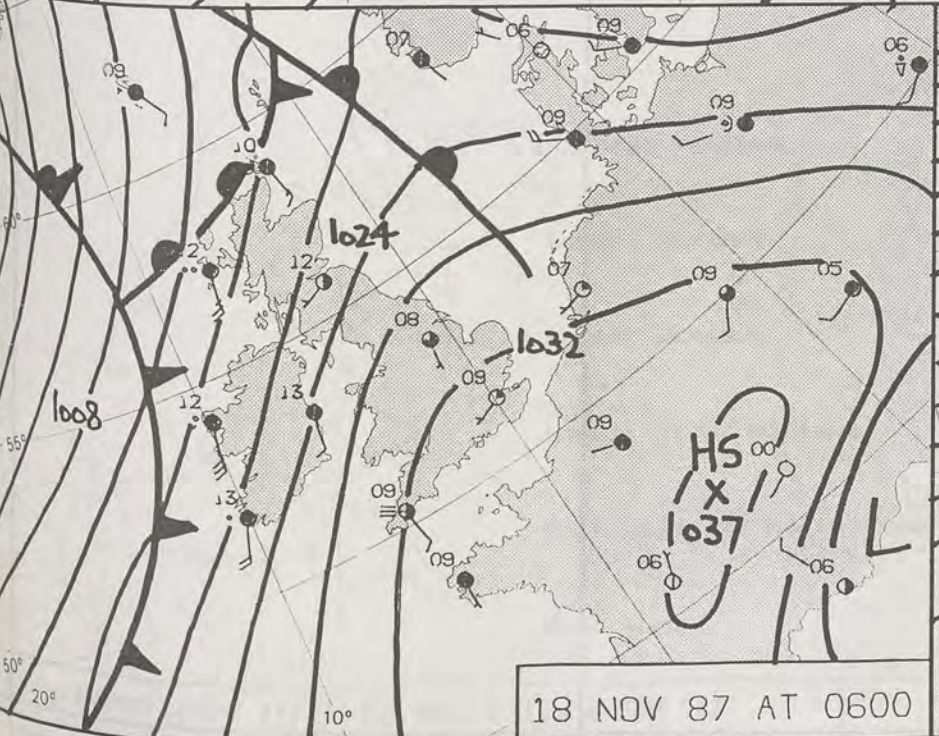 09
07
06
09
06
09
09
10
60°
1024
12
12
07
09
05
08
1032
09
1008
12
13
09
55°
HS
00
X
1037
09
13
06
09
06
L
50°
20°
10°
18 NOV 87 AT 0600